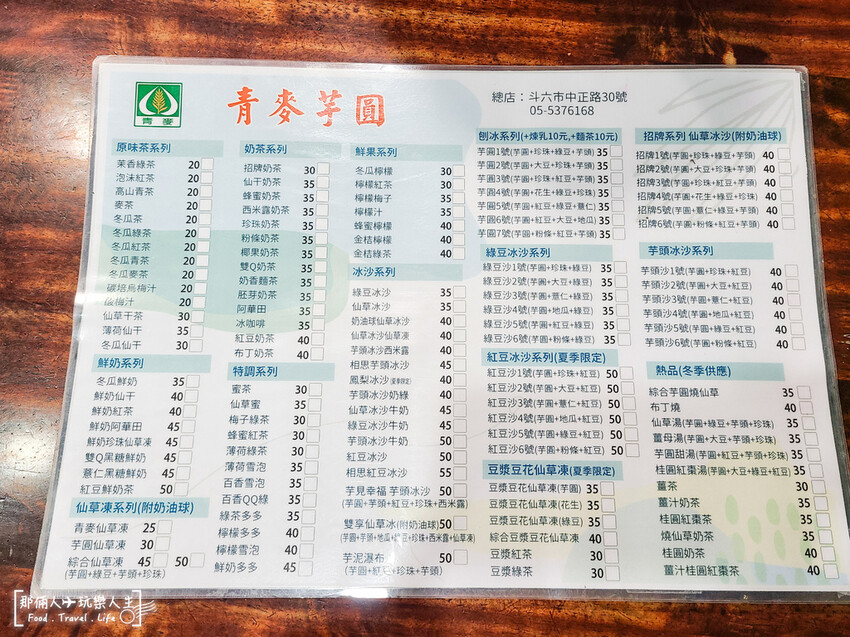 青麥
青麥芋圓
總店：斗六市中正路30號
05-5376168
原味茶系列
茉香綠茶 20
泡沫紅茶 20
高山青茶 20
麥茶 20
冬瓜茶 20
冬瓜綠茶 20
冬瓜紅茶 20
冬瓜青茶 20
冬瓜麥茶 20
碳培烏梅汁 20
碳梅汁 20
仙草干茶 30
薄荷仙干 35
冬瓜仙干 30
鮮奶系列
冬瓜鮮奶 35
鮮奶仙干 40
鮮奶紅茶 40
鮮奶阿華田 45
鮮奶珍珠仙草凍 45
雙Q黑糖鮮奶 45
薏仁黑糖鮮奶 45
紅豆鮮奶茶 50
仙草凍系列(附奶油球)
青麥仙草凍 25
芋圓仙草凍 30
綜合仙草凍 45 50
(芋圓+綠豆+芋頭+珍珠)
奶茶系列
招牌奶茶 30
仙干奶茶 35
蜂蜜奶茶 35
西米露奶茶 35
珍珠奶茶 35
粉條奶茶 35
椰果奶茶 35
雙Q奶茶 35
奶香麵茶 35
胚芽奶茶 35
阿華田 35
冰咖啡 35
紅豆奶茶 40
布丁奶茶 40
特調系列
蜜茶 30
仙草蜜 35
梅子綠茶 30
蜂蜜紅茶 30
薄荷綠茶 30
薄荷雪泡 35
百香雪泡 35
百香QQ綠 35
綠茶多多 35
檸檬多多 40
檸檬雪泡 40
鮮奶多多 45
鮮果系列
冬瓜檸檬 30
檸檬紅茶 30
檸檬梅子 35
檸檬汁 35
蜂蜜檸檬 40
金桔檸檬 40
金桔綠茶 40
冰沙系列
綠豆冰沙 35
仙草冰沙 35
奶油球仙草冰沙 40
仙草冰沙仙草凍 40
芋頭冰沙西米露 40
相思芋頭冰沙 45
鳳梨冰沙(夏季限定) 40
芋頭冰沙奶綠 40
仙草冰沙牛奶 45
綠豆冰沙牛奶 45
芋頭冰沙牛奶 50
紅豆冰沙 50
相思紅豆冰沙 55
芋見幸福 芋頭冰沙 50
(芋圓+芋頭+紅豆+珍珠+西米露)
雙享仙草冰(附奶油球)50
(芋圓+芋頭+地瓜+綠豆+珍珠+西米露+仙草凍)
芋泥瀑布 50
(芋圓+紅豆+珍珠+芋頭)
刨冰系列(+煉乳10元,+麵茶10元)
芋圓1號(芋圓+珍珠+綠豆+芋頭) 35
芋圓2號(芋圓+大豆+珍珠+芋頭) 35
芋圓3號(芋圓+珍珠+紅豆+芋頭) 35
芋圓4號(芋圓+花生+綠豆+珍珠) 35
芋圓5號(芋圓+紅豆+綠豆+薏仁) 35
芋圓6號(芋圓+紅豆+大豆+地瓜) 35
芋圓7號(芋圓+粉條+紅豆+芋頭) 35
綠豆冰沙系列
綠豆沙1號(芋圓+珍珠+綠豆) 35
綠豆沙2號(芋圓+大豆+綠豆) 35
綠豆沙3號(芋圓+薏仁+綠豆) 35
綠豆沙4號(芋圓+地瓜+綠豆) 35
綠豆沙5號(芋圓+紅豆+綠豆) 35
綠豆沙6號(芋圓+粉條+綠豆) 35
紅豆冰沙系列(夏季限定)
紅豆沙1號(芋圓+珍珠+紅豆) 50
紅豆沙2號(芋圓+大豆+紅豆) 50
紅豆沙3號(芋圓+薏仁+紅豆) 50
紅豆沙4號(芋圓+地瓜+紅豆) 50
紅豆沙5號(芋圓+綠豆+紅豆) 50
紅豆沙6號(芋圓+粉條+紅豆) 50
豆漿豆花仙草凍(夏季限定)
豆漿豆花仙草凍(芋圓) 35
豆漿豆花仙草凍(花生) 35
豆漿豆花仙草凍(綠豆) 35
綜合豆漿豆花仙草凍 40
豆漿紅茶 30
豆漿綠茶 30
招牌系列 仙草冰沙(附奶油球)
招牌1號(芋圓+珍珠+綠豆+芋頭) 40
招牌2號(芋圓+大豆+珍珠+芋頭) 40
招牌3號(芋圓+珍珠+紅豆+芋頭) 40
招牌4號(芋圓+花生+綠豆+珍珠) 40
招牌5號(芋圓+薏仁+綠豆+芋頭) 40
招牌6號(芋圓+粉條+紅豆+芋頭) 40
芋頭冰沙系列
芋頭沙1號(芋圓+珍珠+紅豆) 40
芋頭沙2號(芋圓+大豆+紅豆) 40
芋頭沙3號(芋圓+薏仁+紅豆) 40
芋頭沙4號(芋圓+地瓜+紅豆) 40
芋頭沙5號(芋圓+綠豆+紅豆) 40
芋頭沙6號(芋圓+粉條+紅豆) 40
熱品(冬季供應)
綜合芋圓燒仙草 35
布丁燒 40
仙草湯(芋圓+綠豆+芋頭+珍珠) 35
薑母湯(芋圓+大豆+芋頭+珍珠) 35
芋圓甜湯(芋圓+紅豆+芋頭+珍珠) 35
桂圓紅棗湯(芋圓+大豆+綠豆+紅豆) 35
薑茶 30
薑汁奶茶 35
桂圓紅棗茶 35
燒仙草奶茶 35
桂圓奶茶 40
薑汁桂圓紅棗茶 40
那倆人玩樂人生
Food . Travel . Life